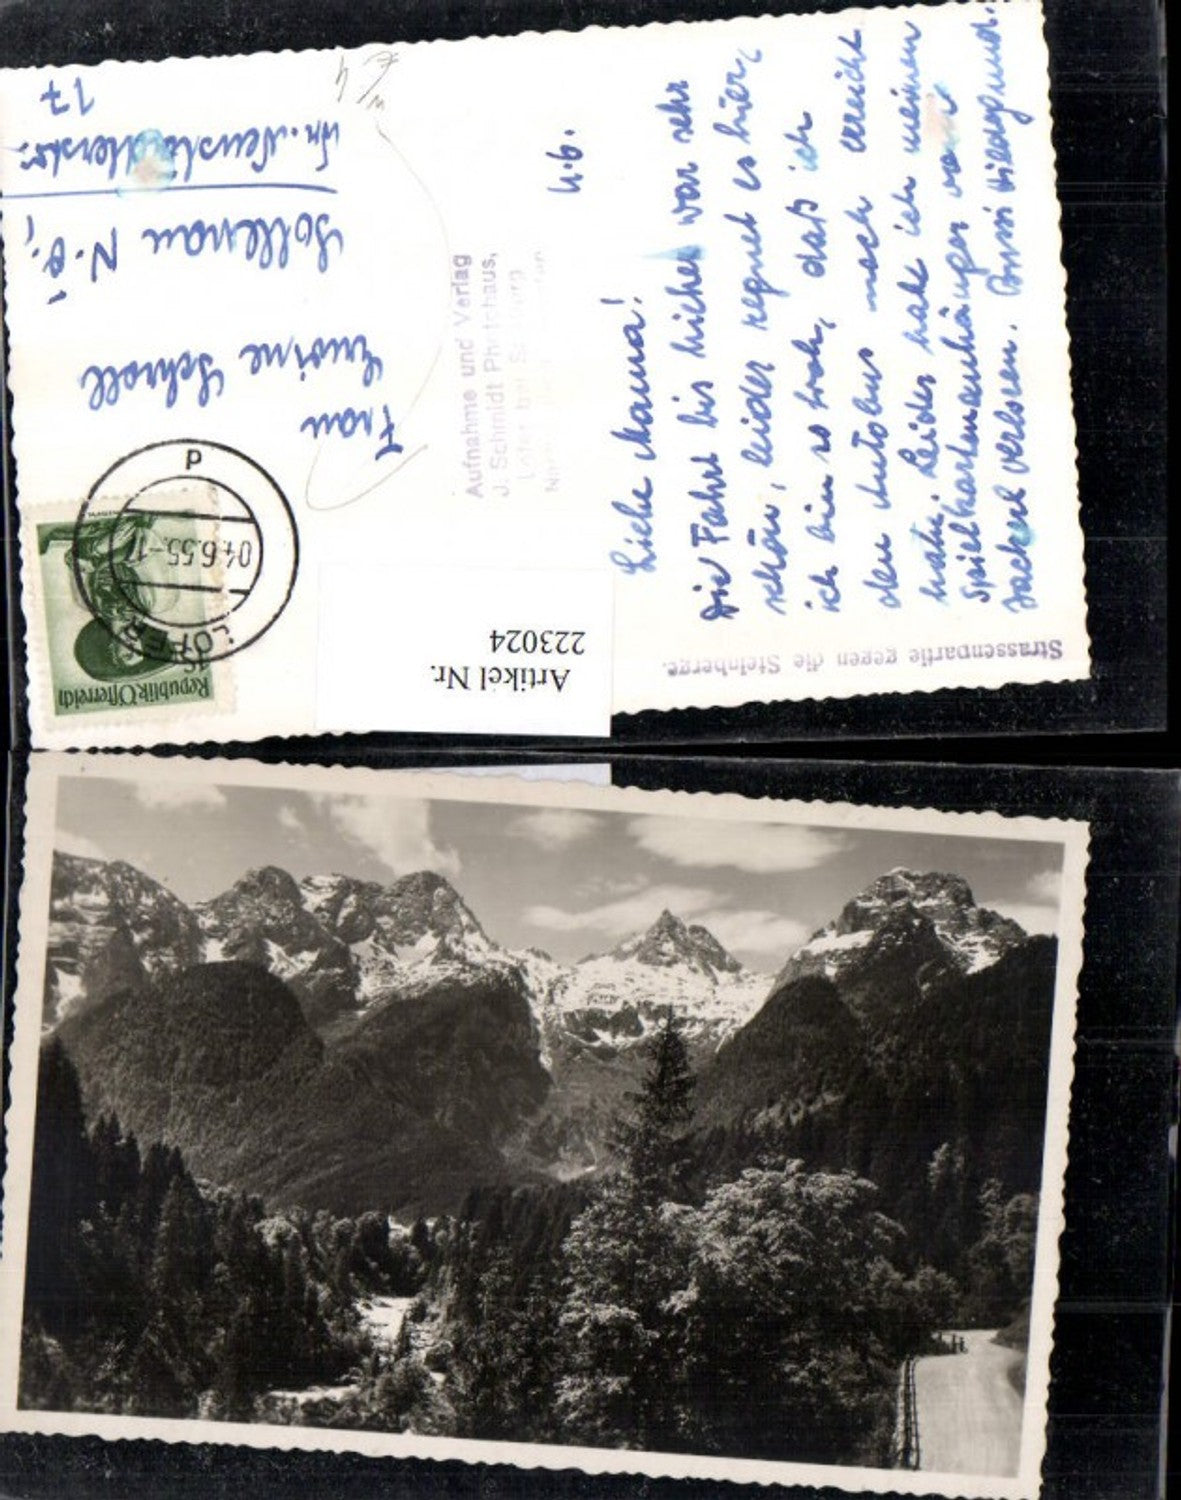 Strassenpartie gegen die Steinberge.
Liebe Mama!
Die Fahrt bis hieher war sehr
schön, leider regnet es hier,
ich bin so froh, daß ich
den Autobus noch erreicht
habe. Leider habe ich meinen
Spielkartenanhänger vom
Jackerl verloren. Bussi
u.b.
Aufnahme und Verlag
J. Schmidt Photohaus,
Lofer
Frau
Schroll
Sollenau N.Ö.,
Wr. Neustädterstr.
17
Republik Österreich
1S
LOFER
04.6.55.-1
d
Artikel Nr.
223024